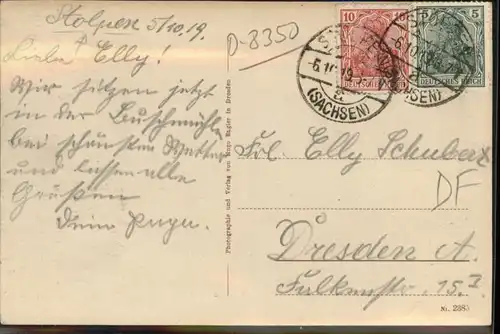 Stolpen 5/10.19.
Liebe Elly!
Wir sitzen jetzt
in der Buschmühle
bei schönsten Wetter
und lassen alle
Grüßen
Deine
D-8350
10
5
DEUTSCHES REICH
DEUTSCHES REICH
-6.10.19
a
(SACHSEN)
Photographie und Verlag von Hugo Engler in Dresden
Frl. Elly Schubert
DF
Dresden A.
Falkenstr. 15.I
No. 2885